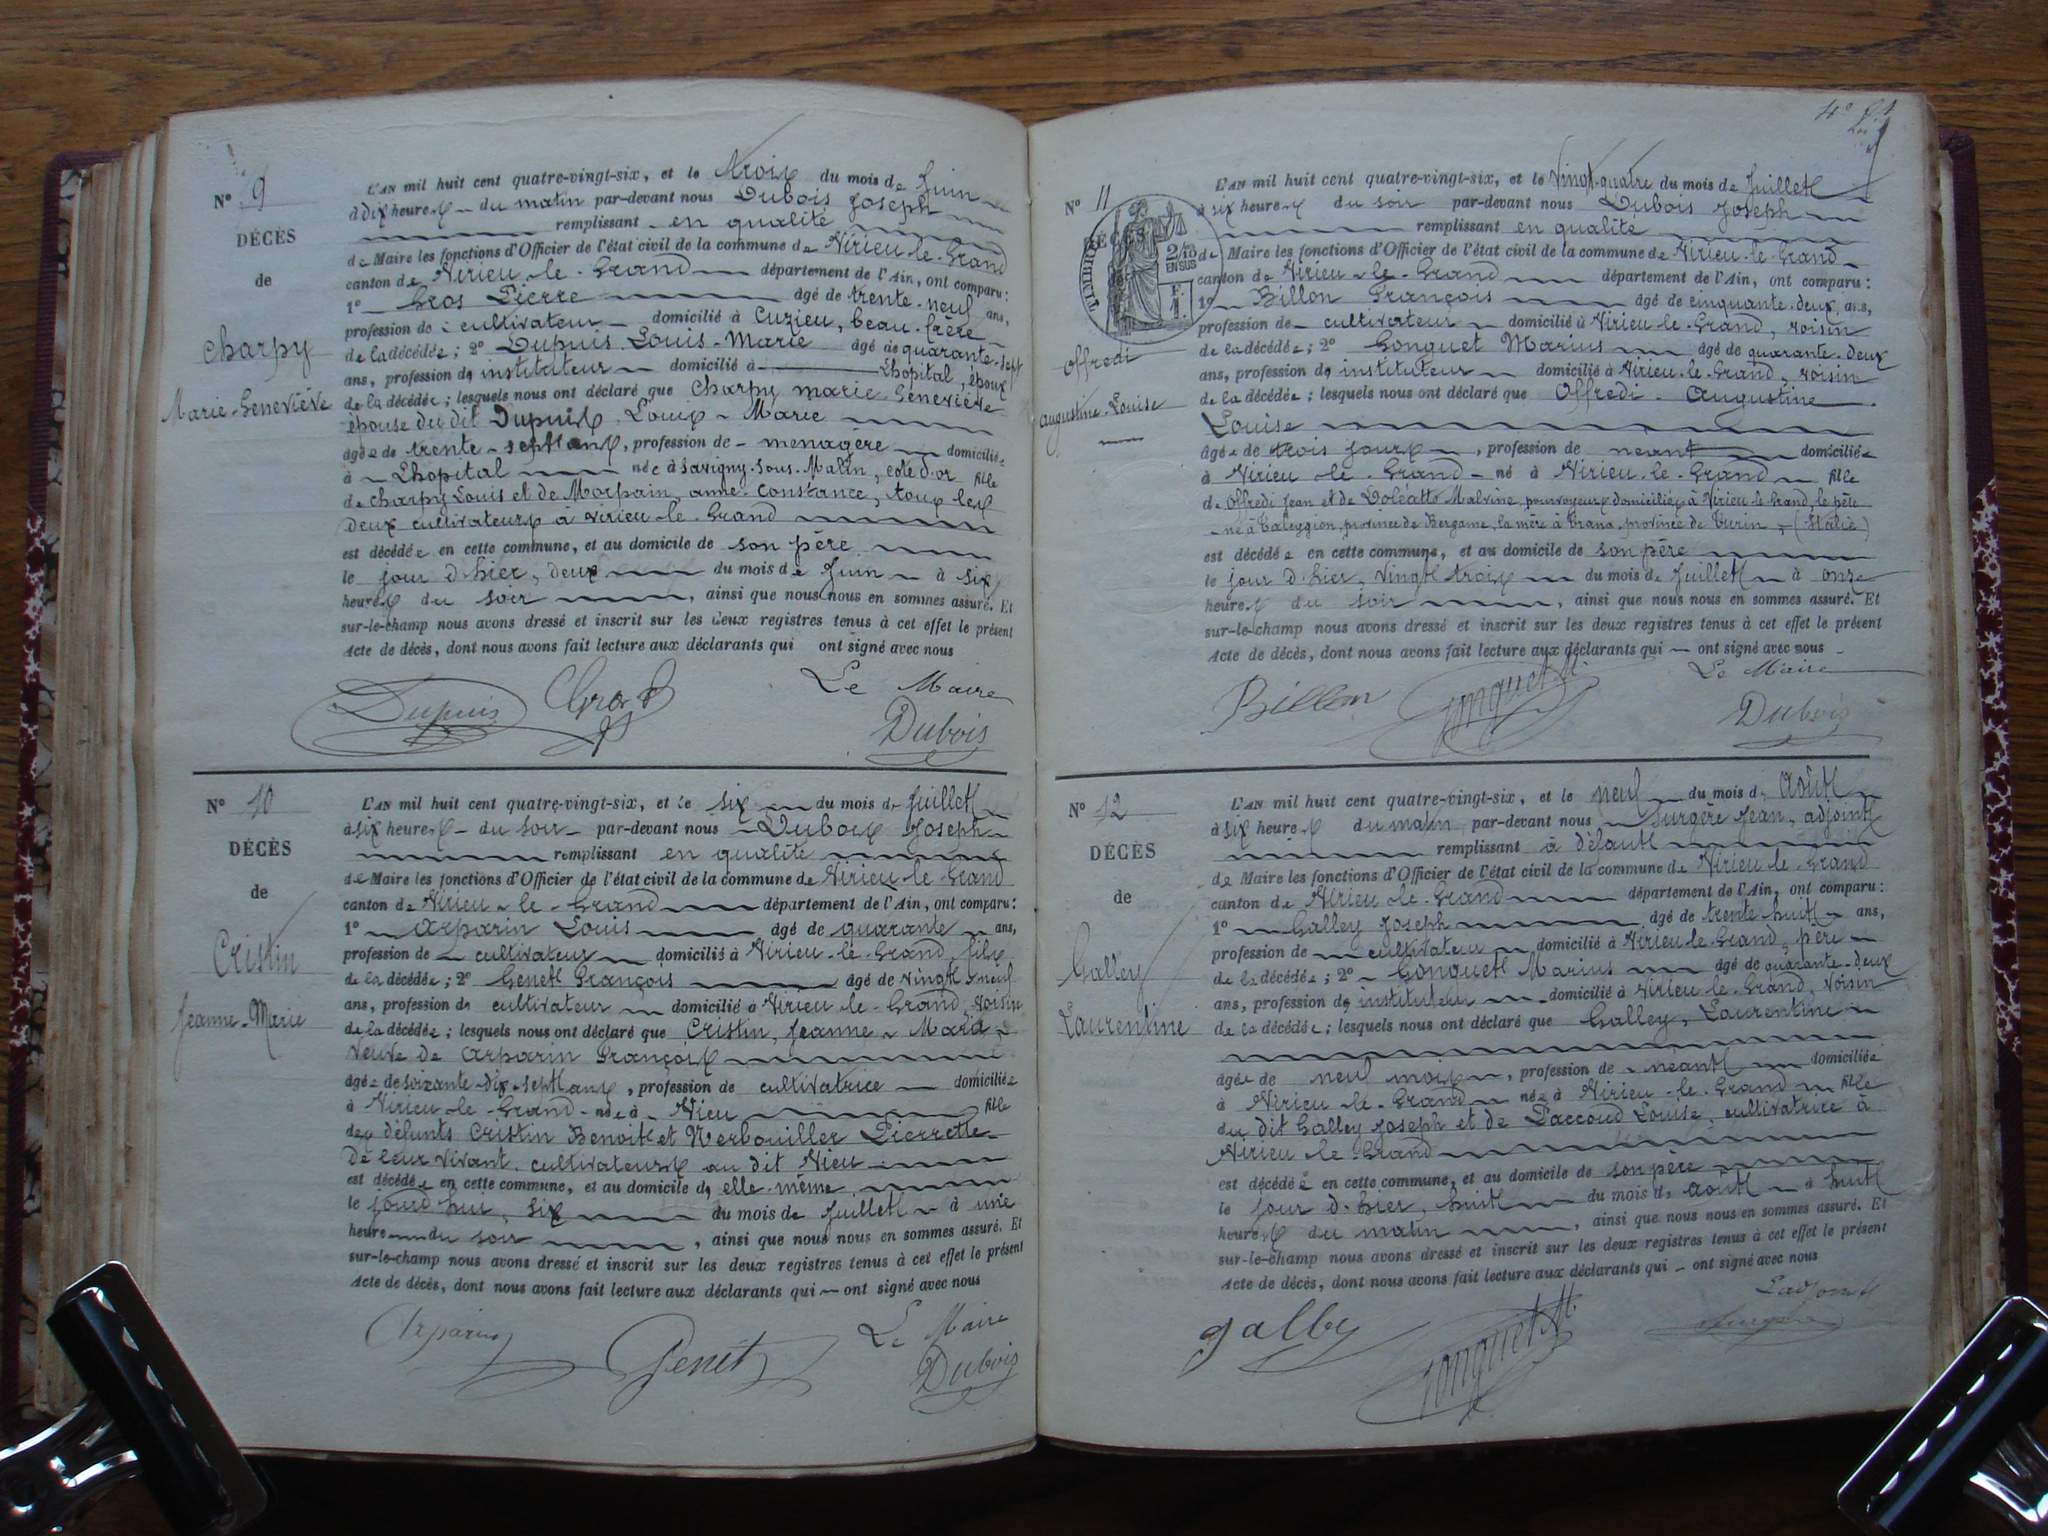 N° 9
DÉCÈS
de
Charpy
Marie-Geneviève
L'AN mil huit cent quatre-vingt-six, et le trois du mois de Juin
à dix heures du matin par-devant nous Dubois Joseph
remplissant en qualité
de Maire les fonctions d'Officier de l'état civil de la commune de Virieu-le-Grand
canton de Virieu-le-Grand département de l'Ain, ont comparu :
1° Gros Pierre âgé de trente-neuf ans,
profession de cultivateur domicilié à Cuzieu, beau-frère
de la décédée ; 2° Dupuis Louis-Marie âgé de quarante-sept
ans, profession de instituteur domicilié à Lhopital, époux
de la décédée ; lesquels nous ont déclaré que Charpy marie Geneviève
épouse du dit Dupuis Louis-Marie
âgée de trente-sept ans, profession de ménagère domiciliée
à Lhopital née à Savigny-sous-Malin, cote d'or fille
de Charpy Louis et de Morpain, anne Constance, tous les
deux cultivateurs à Virieu-le-Grand
est décédée en cette commune, et au domicile de son père
le jour d'hier, deux du mois de Juin à six
heures du soir, ainsi que nous nous en sommes assuré. Et
sur-le-champ nous avons dressé et inscrit sur les deux registres tenus à cet effet le présent
Acte de décès, dont nous avons fait lecture aux déclarants qui ont signé avec nous
Le Maire
Dupuis Gros P Dubois
N° 10
DÉCÈS
de
Cristin
Jeanne-Marie
L'AN mil huit cent quatre-vingt-six, et le six du mois de Juillet
à six heures du soir par-devant nous Dubois Joseph
remplissant en qualité
de Maire les fonctions d'Officier de l'état civil de la commune de Virieu-le-Grand
canton de Virieu-le-Grand département de l'Ain, ont comparu :
1° Arparin Louis âgé de quarante ans,
profession de cultivateur domicilié à Virieu-le-Grand, fils
de la décédée ; 2° Genet François âgé de vingt neuf
ans, profession de cultivateur domicilié à Virieu-le-Grand, voisin
de la décédée ; lesquels nous ont déclaré que Cristin, Jeanne-Marie
veuve de Arparin François
âgée de soixante-dix-sept ans, profession de cultivatrice domiciliée
à Virieu-le-Grand née à Vieu fille
des défunts Cristin Benoit et Verbouiller Pierrette
de leur vivant cultivateurs au dit Vieu
est décédée en cette commune, et au domicile de elle-même
le jourd'hui, six du mois de Juillet à une
heure du soir, ainsi que nous nous en sommes assuré. Et
sur-le-champ nous avons dressé et inscrit sur les deux registres tenus à cet effet le présent
Acte de décès, dont nous avons fait lecture aux déclarants qui ont signé avec nous
Le Maire
Arparin Genet Dubois
N° 11
TIMBRE
2/10
EN SUS
F.
1.
Offredi
Augustine-Louise
L'AN mil huit cent quatre-vingt-six, et le Vingt-quatre du mois de Juillet
à six heures du soir par-devant nous Dubois Joseph
remplissant en qualité
de Maire les fonctions d'Officier de l'état civil de la commune de Virieu-le-Grand
canton de Virieu-le-Grand département de l'Ain, ont comparu :
1° Billon François âgé de cinquante-deux ans,
profession de cultivateur domicilié à Virieu-le-Grand, voisin
de la décédée ; 2° Gonguet Marius âgé de quarante-deux
ans, profession de instituteur domicilié à Virieu-le-Grand, voisin
de la décédée ; lesquels nous ont déclaré que Offredi Augustine
Louise
âgée de trois jours, profession de néant domiciliée
à Virieu-le-Grand né à Virieu-le-Grand fille
de Offredi Jean et de Doléatto Malvine, pourvoyeurs domiciliés à Virieu-le-Grand, le père
né à Taleggion, province de Bergame, la mère à Trana province de Turin, (Italie)
est décédée en cette commune, et au domicile de son père
le jour d'hier, vingt trois du mois de Juillet à onze
heures du soir, ainsi que nous nous en sommes assuré. Et
sur-le-champ nous avons dressé et inscrit sur les deux registres tenus à cet effet le présent
Acte de décès, dont nous avons fait lecture aux déclarants qui ont signé avec nous
Le Maire
Billon Gonguet M. Dubois
N° 12
DÉCÈS
de
Galley
Laurentine
L'AN mil huit cent quatre-vingt-six, et le neuf du mois de Août
à six heures du matin par-devant nous Surgère Jean, adjoint
remplissant à défaut
de Maire les fonctions d'Officier de l'état civil de la commune de Virieu-le-Grand
canton de Virieu-le-Grand département de l'Ain, ont comparu :
1° Galley Joseph âgé de trente huit ans,
profession de cultivateur domicilié à Virieu-le-Grand, père
de la décédée ; 2° Gonguet Marius âgé de quarante-deux
ans, profession de instituteur domicilié à Virieu-le-Grand, voisin
de la décédée ; lesquels nous ont déclaré que Galley, Laurentine
âgée de neuf mois, profession de néant domiciliée
à Virieu-le-Grand née à Virieu-le-Grand fille
du dit Galley Joseph et de Paccoud Louise, cultivatrice à
Virieu-le-Grand
est décédée en cette commune, et au domicile de son père
le jour d'hier, huit du mois de août à huit
heures du matin, ainsi que nous nous en sommes assuré. Et
sur-le-champ nous avons dressé et inscrit sur les deux registres tenus à cet effet le présent
Acte de décès, dont nous avons fait lecture aux déclarants qui ont signé avec nous
L'adjoint
Galley Gonguet M. Surgère